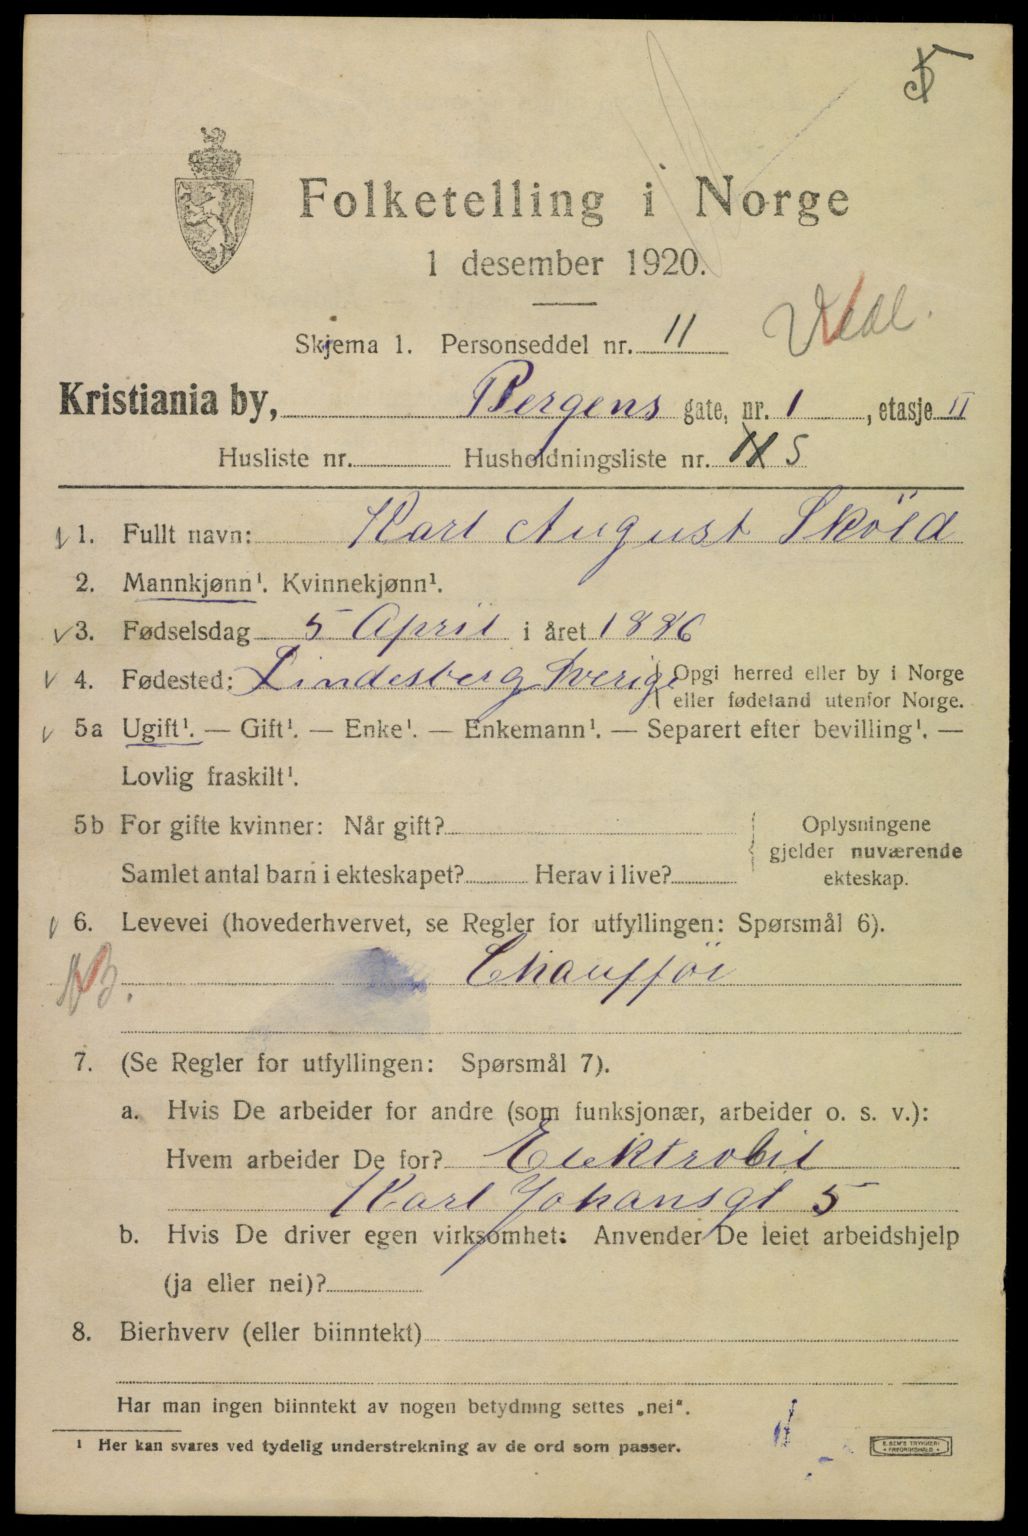 5
Folketelling i Norge
1 desember 1920.
Skjema 1. Personseddel nr. 11
Kristiania by, Bergens gate, nr. 1, etasje II
Husliste nr. Husholdningsliste nr. 11 5
1. Fullt navn: Karl August Sköld
2. Mannkjønn¹. Kvinnekjønn¹.
3. Fødselsdag 5 April i året 1886
4. Fødested: Lindesberg Sverige { Opgi herred eller by i Norge
eller fødeland utenfor Norge.
5a Ugift¹. — Gift¹. — Enke¹. — Enkemann¹. — Separert efter bevilling¹. —
Lovlig fraskilt¹.
5b For gifte kvinner: Når gift?
Samlet antal barn i ekteskapet? Herav i live?
Oplysningene
gjelder nuværende
ekteskap.
6. Levevei (hovederhvervet, se Regler for utfyllingen: Spørsmål 6).
Chaufför
7. (Se Regler for utfyllingen: Spørsmål 7).
a. Hvis De arbeider for andre (som funksjonær, arbeider o. s. v.):
Hvem arbeider De for? Elektrobil
Karl Johansgt 5
b. Hvis De driver egen virksomhet: Anvender De leiet arbeidshjelp
(ja eller nei)?
8. Bierhverv (eller biinntekt)
Har man ingen biinntekt av nogen betydning settes „nei“.
¹ Her kan svares ved tydelig understrekning av de ord som passer.
E. SEM'S TRYKKERI
FREDRIKSHALD